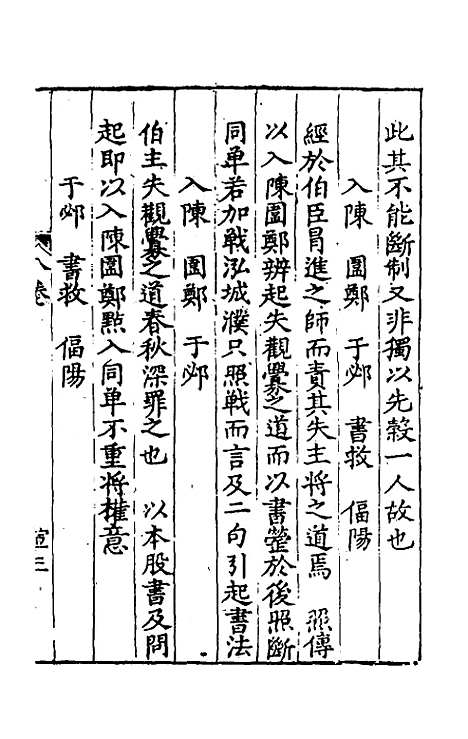 此其不能斷制又非獨以先縠一人故也
入陳 圍鄭 于邲 書救 偪陽
經於伯臣冐進之師而責其失主將之道焉 照傳
以入陳圍鄭辨起失觀釁之道而以書罃於後照斷
同單若加戰泓城濮只照戰而言及二句引起書法
入陳 圍鄭 于邲
伯主失觀釁之道春秋深罪之也 以本股書及問
起即以入陳圍鄭㸃入同单不重將權意
于邲 書救 偪陽
八卷
宣三